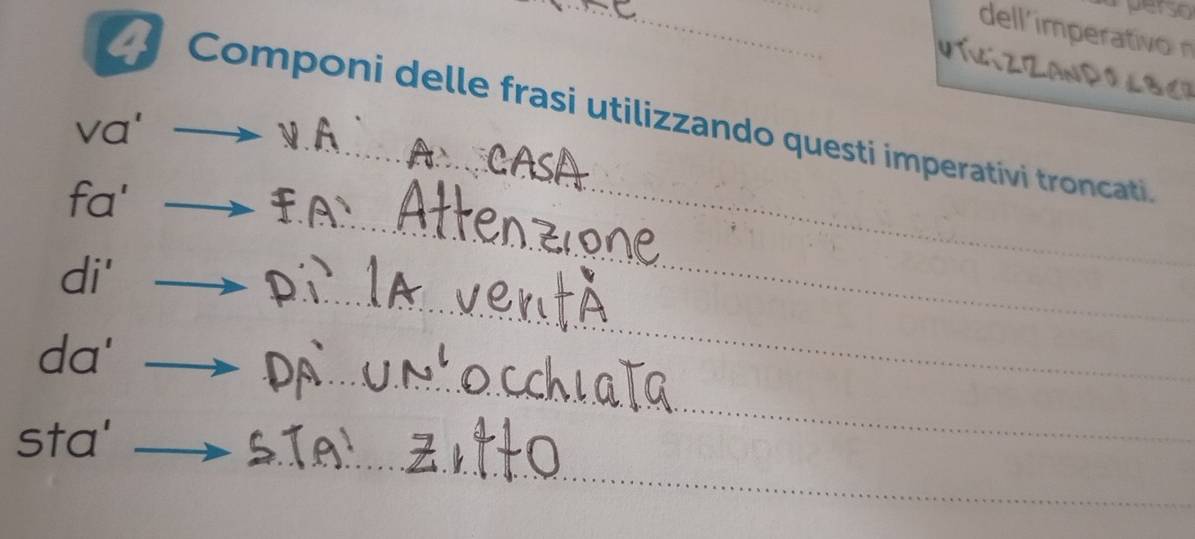 dell'imperativo
4 Componi delle frasi utilizzando questi imperativi troncati.
va' → VA' A CASA
fa' → FA' Attenzione
di' → Dì lA veritÀ
da' → DA' UN'occhiaTa
sta' → STA' zitto